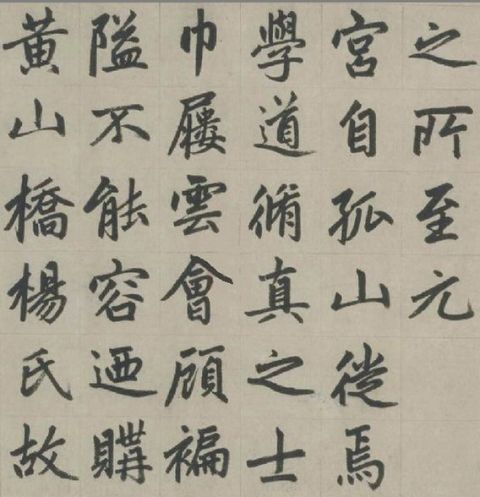 之所至元
宮自孤山徙焉
學道脩真之士
巾屨雲會顧褊
隘不能容迺購
黃山橋楊氏故